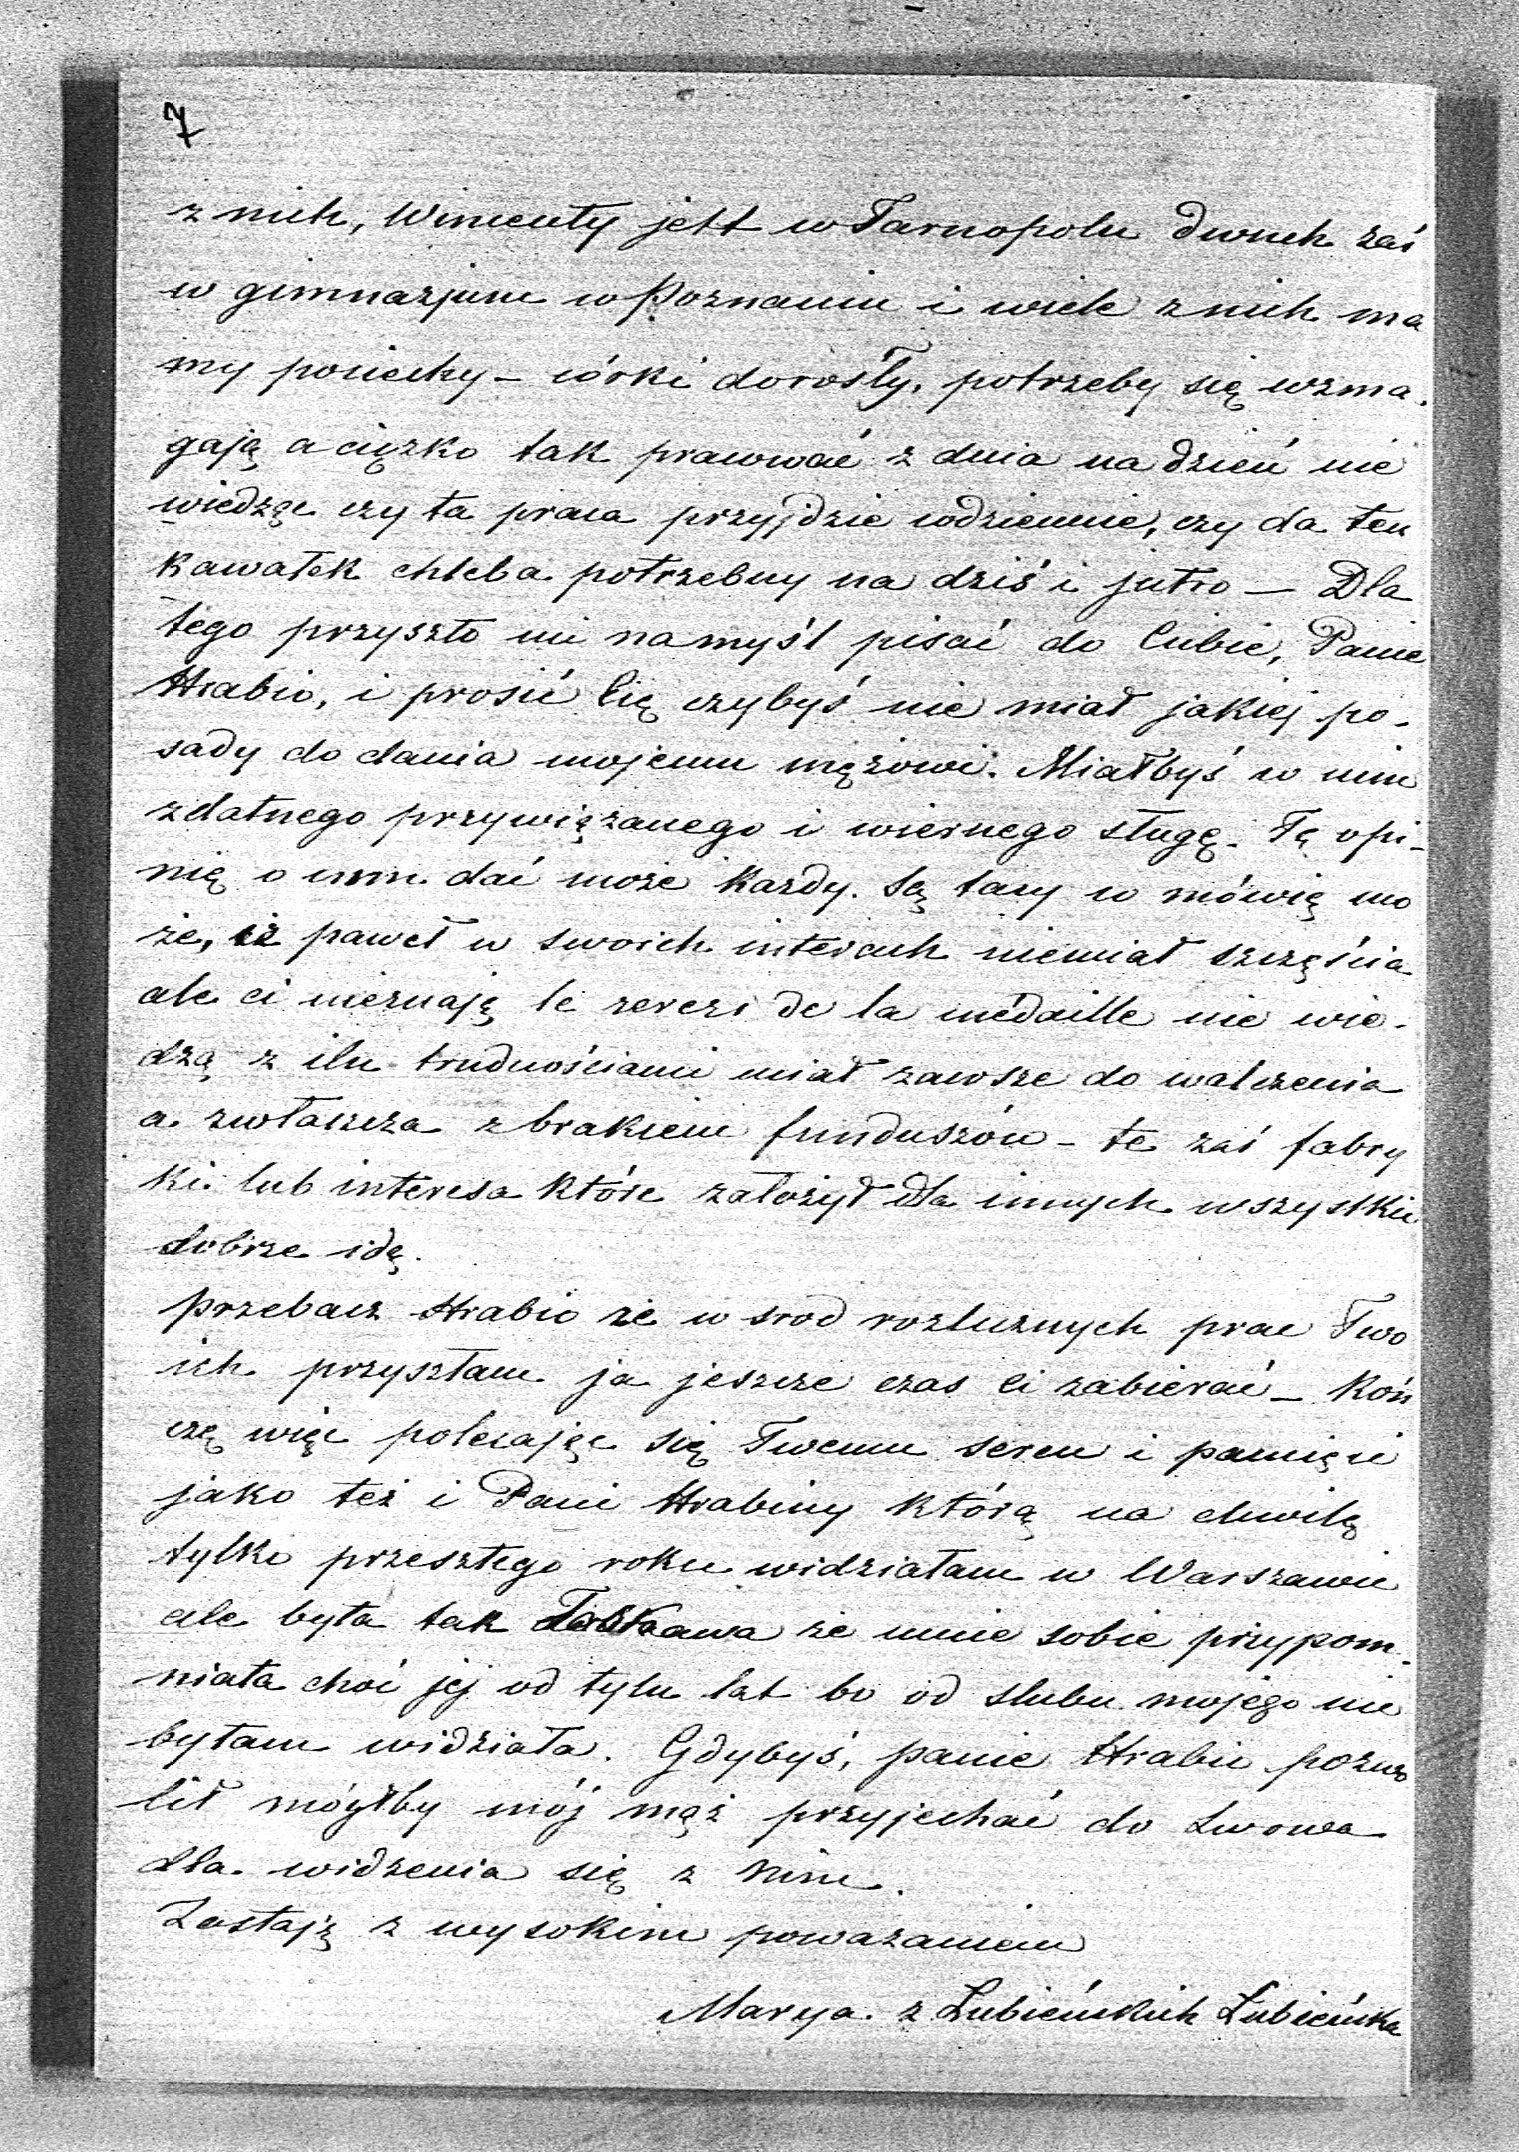 7
z nich, Wincenty jest w Tarnopolu dwuch zaś
w gimnazjum w Poznaniu i wiele z nich ma
my pociechy – córki dorosły, potrzeby się wzma-
gają a ciężko tak pracować z dnia na dzień nie
wiedząc czy ta praca przyjdzie codziennie, czy da ten
kawałek chleba potrzebny na dziś i jutro — Dla
tego przyszło mi na myśl pisać do Ciebie, Panie
Hrabio, i prosić Cię czybyś nie miał jakiej po-
sady do dania mojemu mężowi. Miałbyś w nim
zdatnego przywiązanego i wiernego sługę. Tę opi-
nię o nim dać może każdy. Są tacy co mówią mo
że, iż Paweł w swoich interesach niemiał szczęścia
ale ci nieznają le revers de la médaille nie wie-
dzą z ilu trudnościami miał zawsze do walczenia
a zwłaszcza z brakiem funduszów – te zaś fabry
ki lub interesa które założył dla innych wszystkie
dobrze idą.
Przebacz Hrabio że w srod rozlicznych prac Two
ich przyszłam ja jeszcze czas Ci zabierać – Koń
czę więc polecając się Twemu sercu i pamięci
jako też i Pani Hrabiny którą na chwilę
tylko przeszłego roku widziałam w Warszawie
ale była tak łaskawa że mnie sobie przypom-
niała choć jej od tylu lat bo od slubu mojego nie
byłam widziała. Gdybyś, panie Hrabio pozwo
lił mógłby mój mąż przyjechać do Lwowa
dla widzenia się z Nim.
Zostaję z wysokim poważaniem
Marya z Łubieńskich Łubieńska